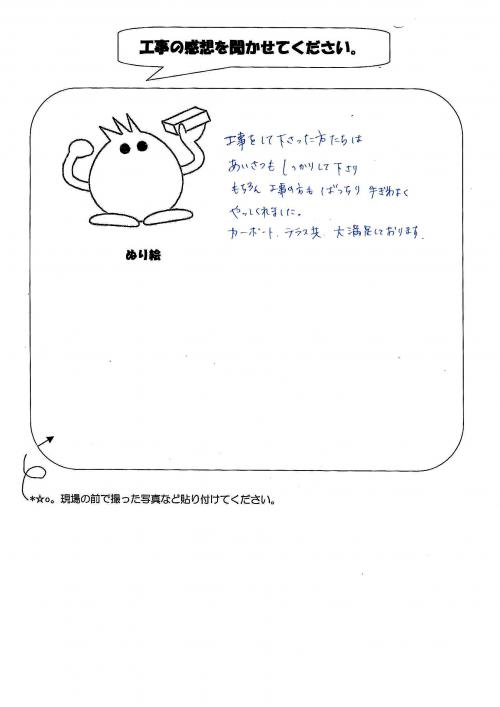 工事の感想を聞かせてください。
工事をして下さった方たちは
あいさつも しっかりして下さり
もちろん 工事の方も ばっちり 手ぎわよく
やってくれました。
カーポート、テラス共、大満足しております。
ぬり絵
*☆。現場の前で撮った写真など貼り付けてください。